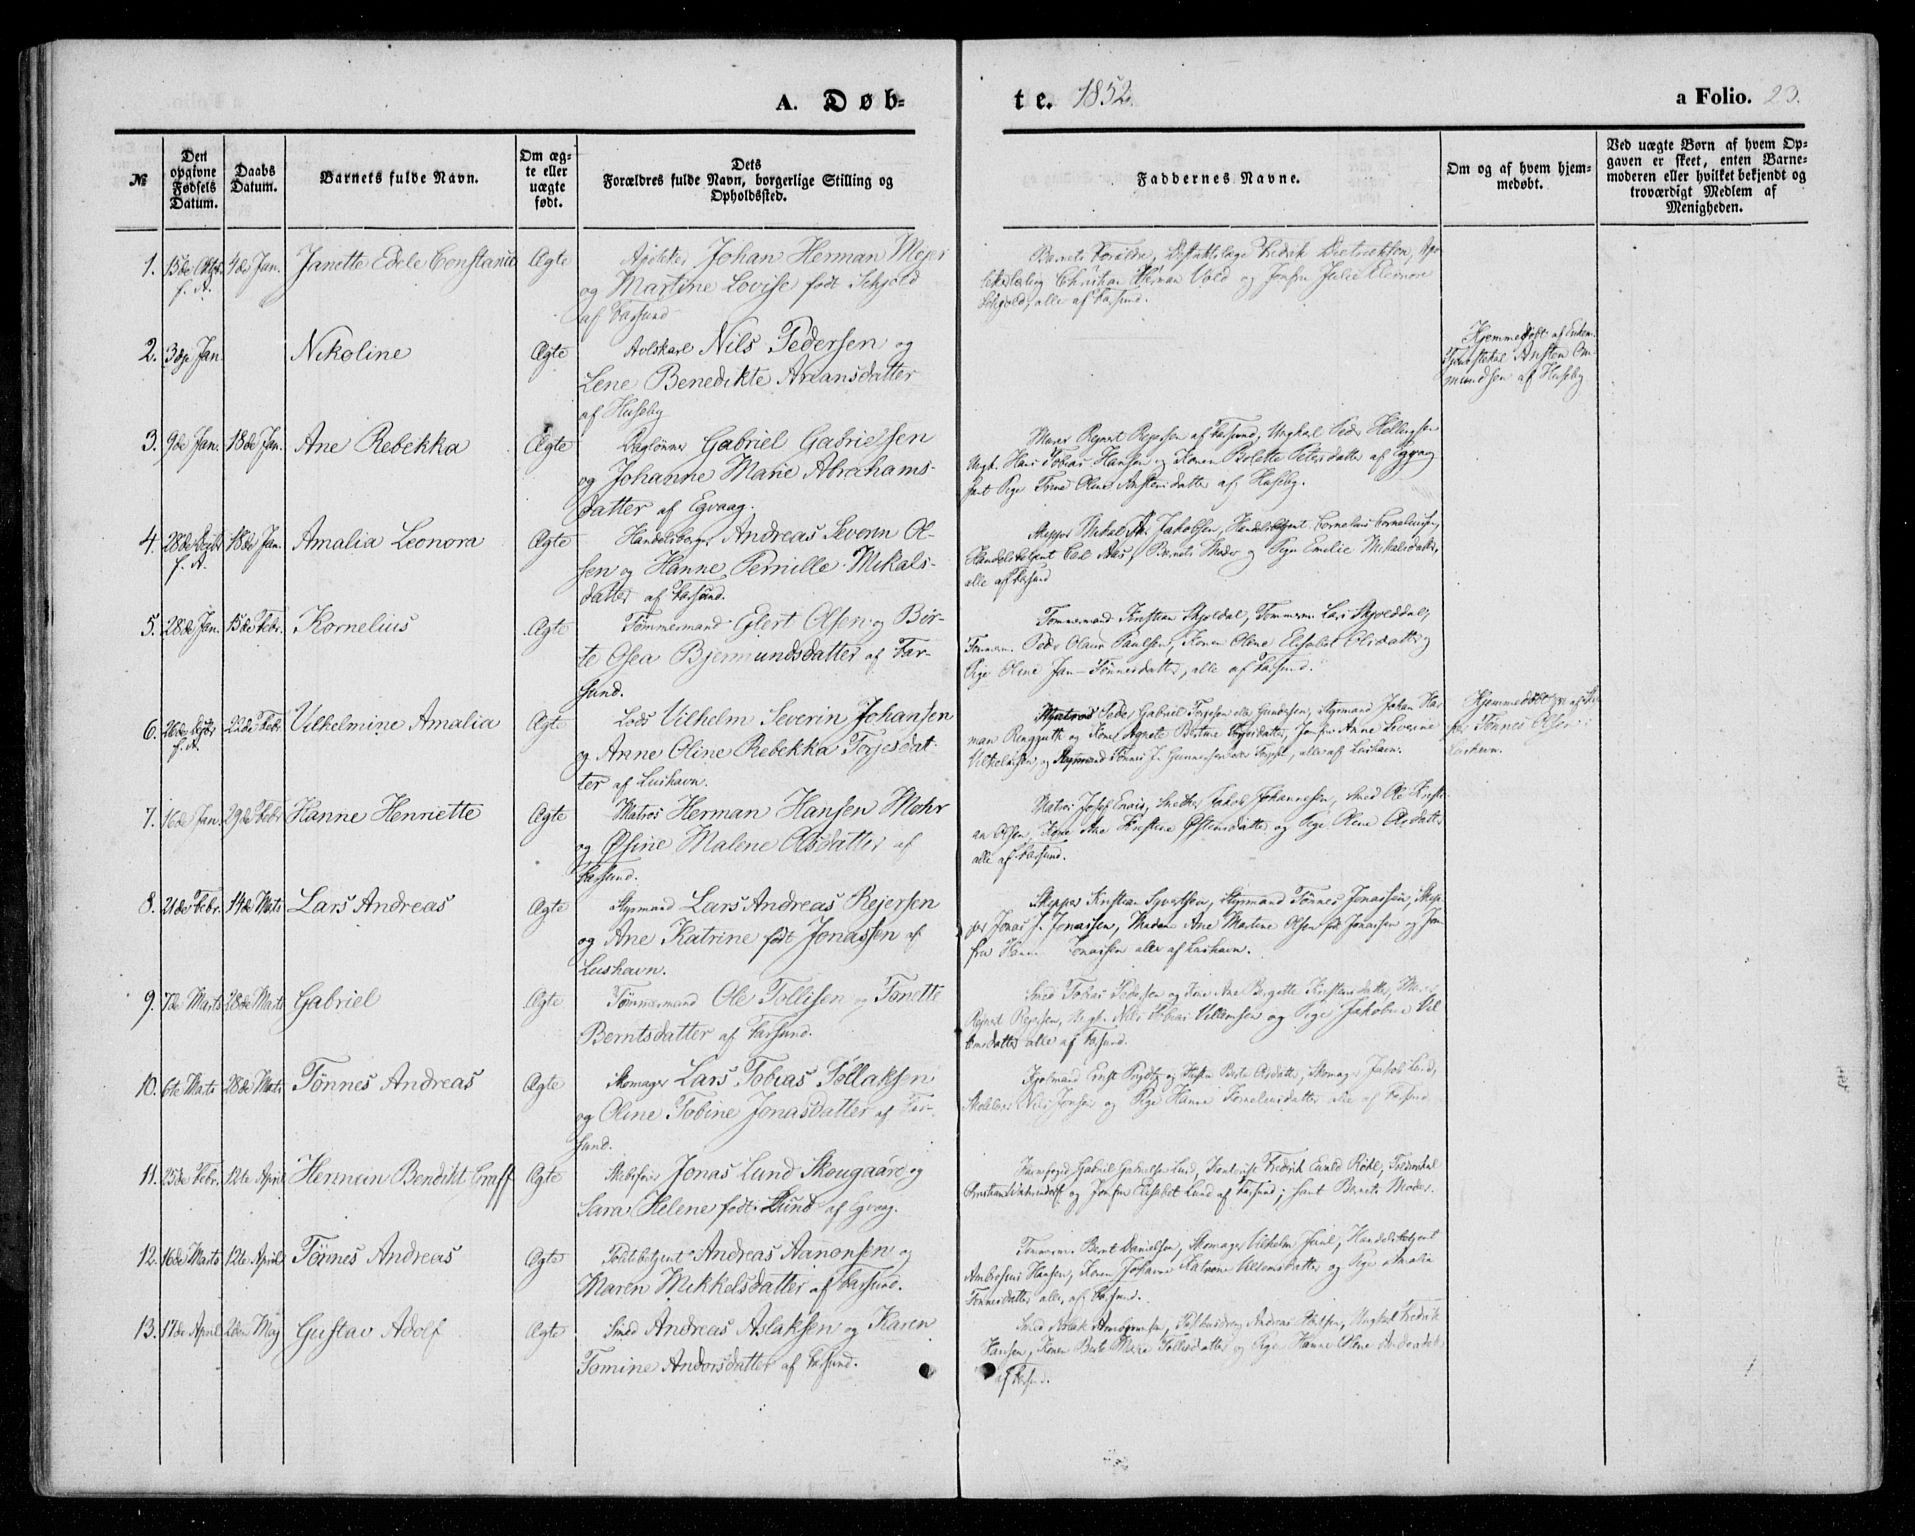 A. Døb-
te. 1852.
a Folio. 23.
№
Den opgivne Fødsels Datum.
Daabs Datum.
Barnets fulde Navn.
Om ægte eller uægte født.
Dets Forældres fulde Navn, borgerlige Stilling og Opholdssted.
Faddernes Navne.
Om og af hvem hjemmedøbt.
Ved uægte Børn af hvem Opgaven er skeet, enten Barnemoderen eller hvilket bekjendt og troværdigt Medlem af Menigheden.
1. 4de Jan. Janette Edele Constance Ægte Apoteker Johan Herman Mejer
og Martine Lovise født Schjold
af Farsund
Barnets Forældre, Distriktslæge Fredrik Dietrichson, Apo-
Christian Herman Vold og Jomfru Julie Eleonore
alle af Farsund.
2. 3die Jan. Nikoline Ægte Avlskarl Nils Pedersen og
Lene Benedikte Areansdatter
af Huseby
Hjemmedøbt af Enkem.
Ansten Om-
mundsen af Huseby
3. 9de Jan. 18de Jan. Ane Rebekka Ægte Daglønner Gabriel Gabrielsen
og Johanne Marie Abrahams-
datter af Egvaag.
Murer Rejert Rejersen af Farsund, Ungkarl Peder Helliesen
Ungk. Hans Tobias Hansen og Konen Bolette Petersdatter af Egvaag
samt Pige Tomine Oline Anstensdatter af Huseby.
4. 28de Decbr f. A. 18de Jan. Amalia Leonora Ægte Handelsborger Andreas Severin Ol-
sen og Hanne Pernille Mikals-
datter af Farsund.
Skipper Mikal Jakobsen, Handelsbetjent Cornelius Corneliussen,
Handelsbetjent Carl Aas, Barnets Moder og Pige Emilie Mikalsdatter,
alle af Farsund
5. 28de Jan. 15de Febr. Kornelius Ægte Tømmermand Elert Olsen og Bør-
te Osea Bjermundsdatter af Far-
sund.
Tømmermand Kristian Skjoldal, Tømmerm. Lars Skjolddal,
Tømmerm. Peder Olaus Paulsen, Konen Olene Elisabet Olsdatter og
Pige Oline Jan-Tønnesdatter, alle af Farsund.
6. f. A. 22de Febr. Vilhelmine Amalia Ægte Lods Vilhelm Severin Johansen
og Anne Oline Rebekka Torjesdat-
ter af Lushavn.
Matros Peder Gabriel Torjesen eller Gundersen, Styrmand Johan Her-
man og Konen Agnete Bertine Torjesdatter, Jomfru Anne Severine
Vilhelmsen, og Styrmand Tønnes J. Gunnersen alle af Lushavn.
Hjemmedøbt af
Tønnes Olsen
Lushavn.
7. 16de Jan. 29de Febr. Hanne Henriette Ægte Matros Herman Hansen Mohr
og Øsine Malene Olsdatter af
Farsund.
Matros Josef Jakob Johannesen, Smed Ole Kristi-
an Olsen, Kone Ane Kirstine Østensdatter og Pige Olene Olsdatter
alle af Farsund.
8. 21de Febr. 14de Marts Lars Andreas Ægte Styrmand Lars Andreas Rejersen
og Ane Katrine født Jonassen af
Lushavn.
Skipper Kristian Syvertsen, Styrmand Tønnes Jonassen, Skip-
per Jonas J. Jonassen, Madam Ane Martine Olsen født Jonassen og Jom-
fru Hanne Jonassen alle af Lushavn.
9. 7de Marts 28de Marts Gabriel Ægte Tømmermand Ole Tollisen og Tonette
Berntsdatter af Farsund.
Smed Tobias Pedersen og Kone Ane Birgitte Kristensdatter, Murer
Rejert Rejersen, Ungk. Nils Tobias Villumsen og Pige Jakobine Vil-
lumsdatter alle af Farsund.
10. 6te Marts 28de Marts Tønnes Andreas Ægte Skomager Lars Tobias Tollaksen
og Oline Tobine Jonasdatter af Far-
sund.
Ernst og Berte Olsdatter, Skomager Jakob Lund,
Nils Jonsen og Pige Hanne Corneliusdatter alle af Farsund
11. 25de Febr. 12te April Henrein Bendikt Graff Ægte Skibsfører Jonas Lund Skougaard og
Sara Helene født Lund af Egvaag.
Havnefoged Gabriel Gabrielsen Lund, Kontorist Fredrik
og Jomfru Elisabet Lund af Farsund; samt Barnets Moder.
12. 16de Marts 12te April Tønnes Andreas Ægte Toldbetjent Andreas Aanonsen og
Maren Mikkelsdatter af Farsund.
Tømmerm. Bernt Danielsen, Skomager Vilhelm Juul, Handelsbetjent
Ambrosius Hansen, Konen Johanne Katrine Villumsdatter og Pige Amalia
Tønnesdatter alle af Farsund.
13. 17de April 2den Maj Gustav Adolf Ægte Smed Andreas Aslaksen og Karen
Tomine Andorsdatter af Farsund.
Smed Aslak Andreas Ungkarl Fredrik
Hansen, Konen Berte Marie Tollisdatter og Pige Hanne Olene
af Farsund.